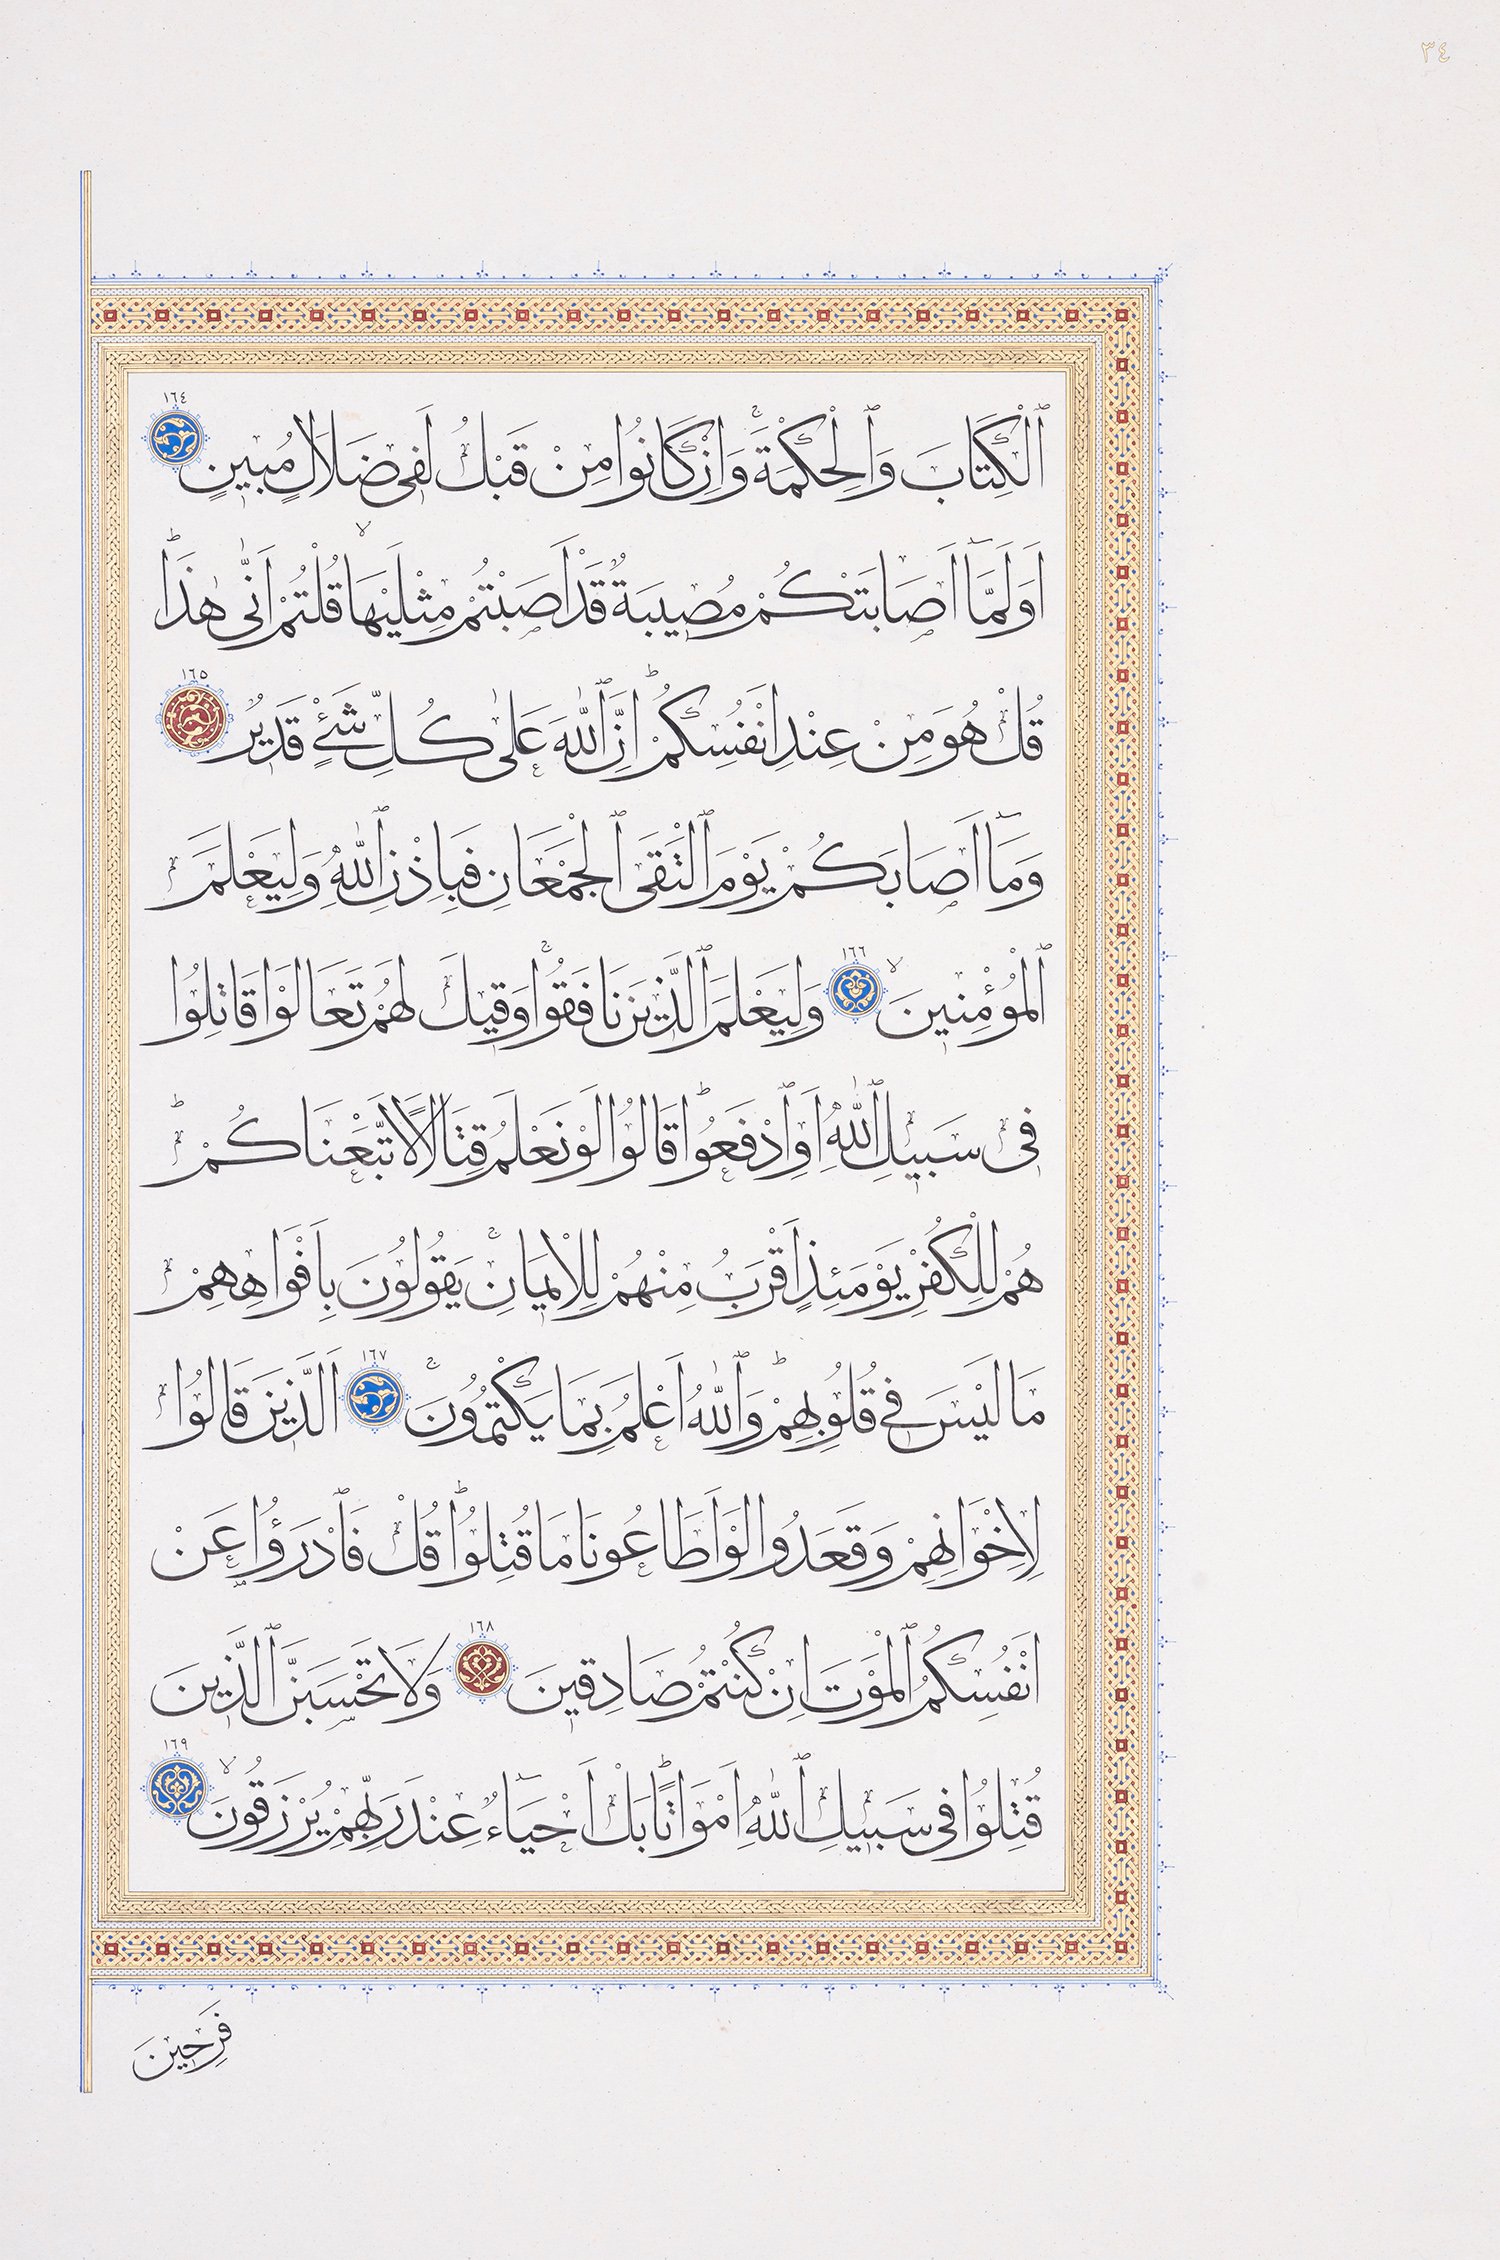 ٣٤
اَلْكِتَابَ وَالْحِكْمَةَۚ وَاِنْ كَانُوا مِنْ قَبْلُ لَف۪ي ضَلَالٍ مُب۪ينٍ ١٦٤
اَوَلَمَّٓا اَصَابَتْكُمْ مُص۪يبَةٌ قَدْ اَصَبْتُمْ مِثْلَيْهَاۙ قُلْتُمْ اَنّٰى هٰذَاۜ
قُلْ هُوَ مِنْ عِنْدِ اَنْفُسِكُمْۜ اِنَّ اللّٰهَ عَلٰى كُلِّ شَيْءٍ قَد۪يرٌ ١٦٥
وَمَٓا اَصَابَكُمْ يَوْمَ الْتَقَى الْجَمْعَانِ فَبِاِذْنِ اللّٰهِ وَلِيَعْلَمَ
الْمُؤْمِن۪ينَۙ ١٦٦ وَلِيَعْلَمَ الَّذ۪ينَ نَافَقُواۚ وَق۪يلَ لَهُمْ تَعَالَوْا قَاتِلُوا
ف۪ي سَب۪يلِ اللّٰهِ اَوِ ادْفَعُواۜ قَالُوا لَوْ نَعْلَمُ قِتَالًا لَاتَّبَعْنَاكُمْۜ
هُمْ لِلْكُفْرِ يَوْمَئِذٍ اَقْرَبُ مِنْهُمْ لِلْا۪يمَانِۚ يَقُولُونَ بِاَفْوَاهِهِمْ
مَا لَيْسَ ف۪ي قُلُوبِهِمْۜ وَاللّٰهُ اَعْلَمُ بِمَا يَكْتُمُونَۚ ١٦٧ اَلَّذ۪ينَ قَالُوا
لِاِخْوَانِهِمْ وَقَعَدُوا لَوْ اَطَاعُونَا مَا قُتِلُواۜ قُلْ فَادْرَؤُ۫ا عَنْ
اَنْفُسِكُمُ الْمَوْتَ اِنْ كُنْتُمْ صَادِق۪ينَ ١٦٨ وَلَا تَحْسَبَنَّ الَّذ۪ينَ
قُتِلُوا ف۪ي سَب۪يلِ اللّٰهِ اَمْوَاتًاۜ بَلْ اَحْيَٓاءٌ عِنْدَ رَبِّهِمْ يُرْزَقُونَۙ ١٦٩
فَرِح۪ينَ